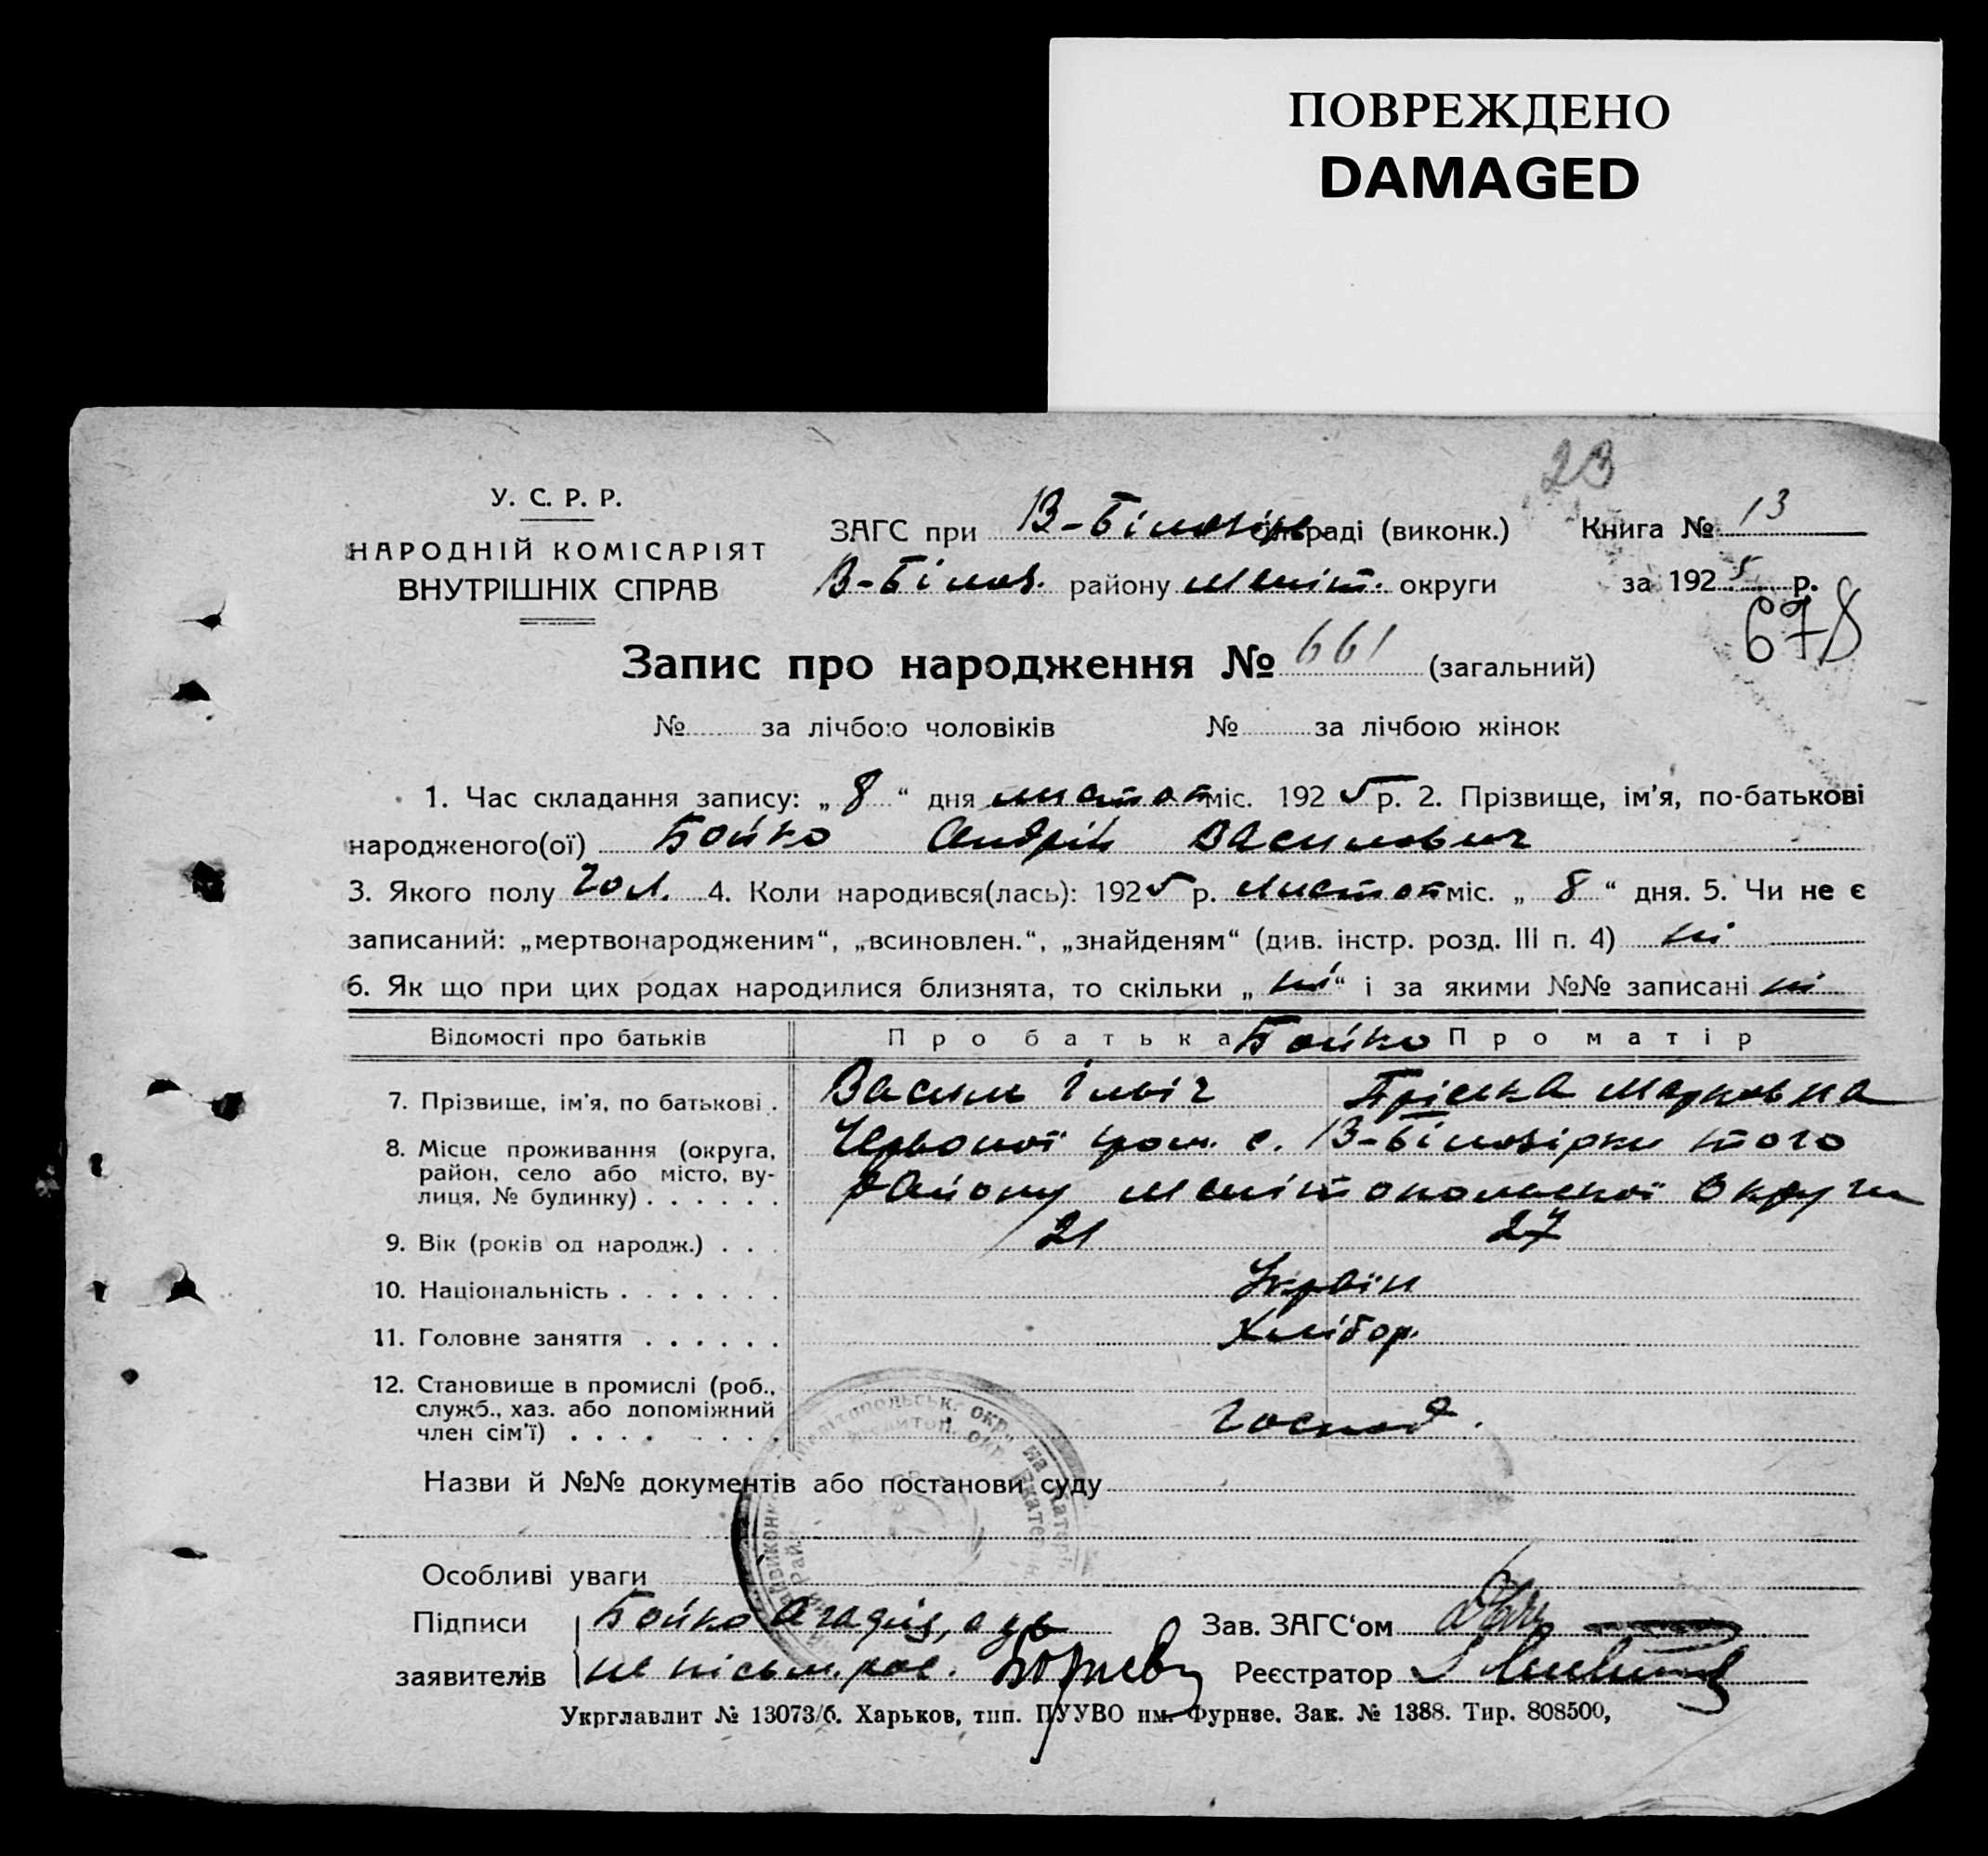 ПОВРЕЖДЕНО
DAMAGED
23
У. С. Р. Р.
НАРОДНІЙ КОМІСАРІЯТ
ВНУТРІШНІХ СПРАВ
ЗАГС при В-Білозір. сільраді (виконк.) Книга № 13
В-Білоз. району Меліт. округи за 1925 р.
678
Запис про народження № 661 (загальний)
№ за лічбою чоловіків № за лічбою жінок
1. Час складання запису: „8“ дня листоп міс. 1925 р. 2. Прізвище, ім'я, по-батькові
народженого(ої) Бойко Андрій Василович
3. Якого полу чол. 4. Коли народився(лась): 1925 р. листоп міс. „8“ дня. 5. Чи не є
записаний: „мертвонародженим“, „всиновлен.“, „знайденям“ (див. інстр. розд. III п. 4) ні
6. Як що при цих родах народилися близнята, то скільки „ні“ і за якими №№ записані ні
Відомості про батьків Про батька Бойко Про матір
7. Прізвище, ім'я, по батькові . Василь Ільіч Пріська Марковна
8. Місце проживання (округа, Червоної гром. с. В-Білозірки того
район, село або місто, ву-
лиця, № будинку) . . . . . . району Мелітопольської округи
9. Вік (років од народж.) . . . 21 27
10. Національність . . . . . . . Україн
11. Головне заняття . . . . . . Хлібор.
12. Становище в промислі (роб.,
служб., хаз. або допоміжний
член сім'ї) . . . . . . . . Господ.
Назви й №№ документів або постанови суду
Особливі уваги
Підписи Бойко Зав. ЗАГС'ом
заявителів не пісьм. рос. Реєстратор
Укрглавлит № 13073/б. Харьков, тип. ПУУВО им. Фурнзе. Зак. № 1388. Тир. 808500,